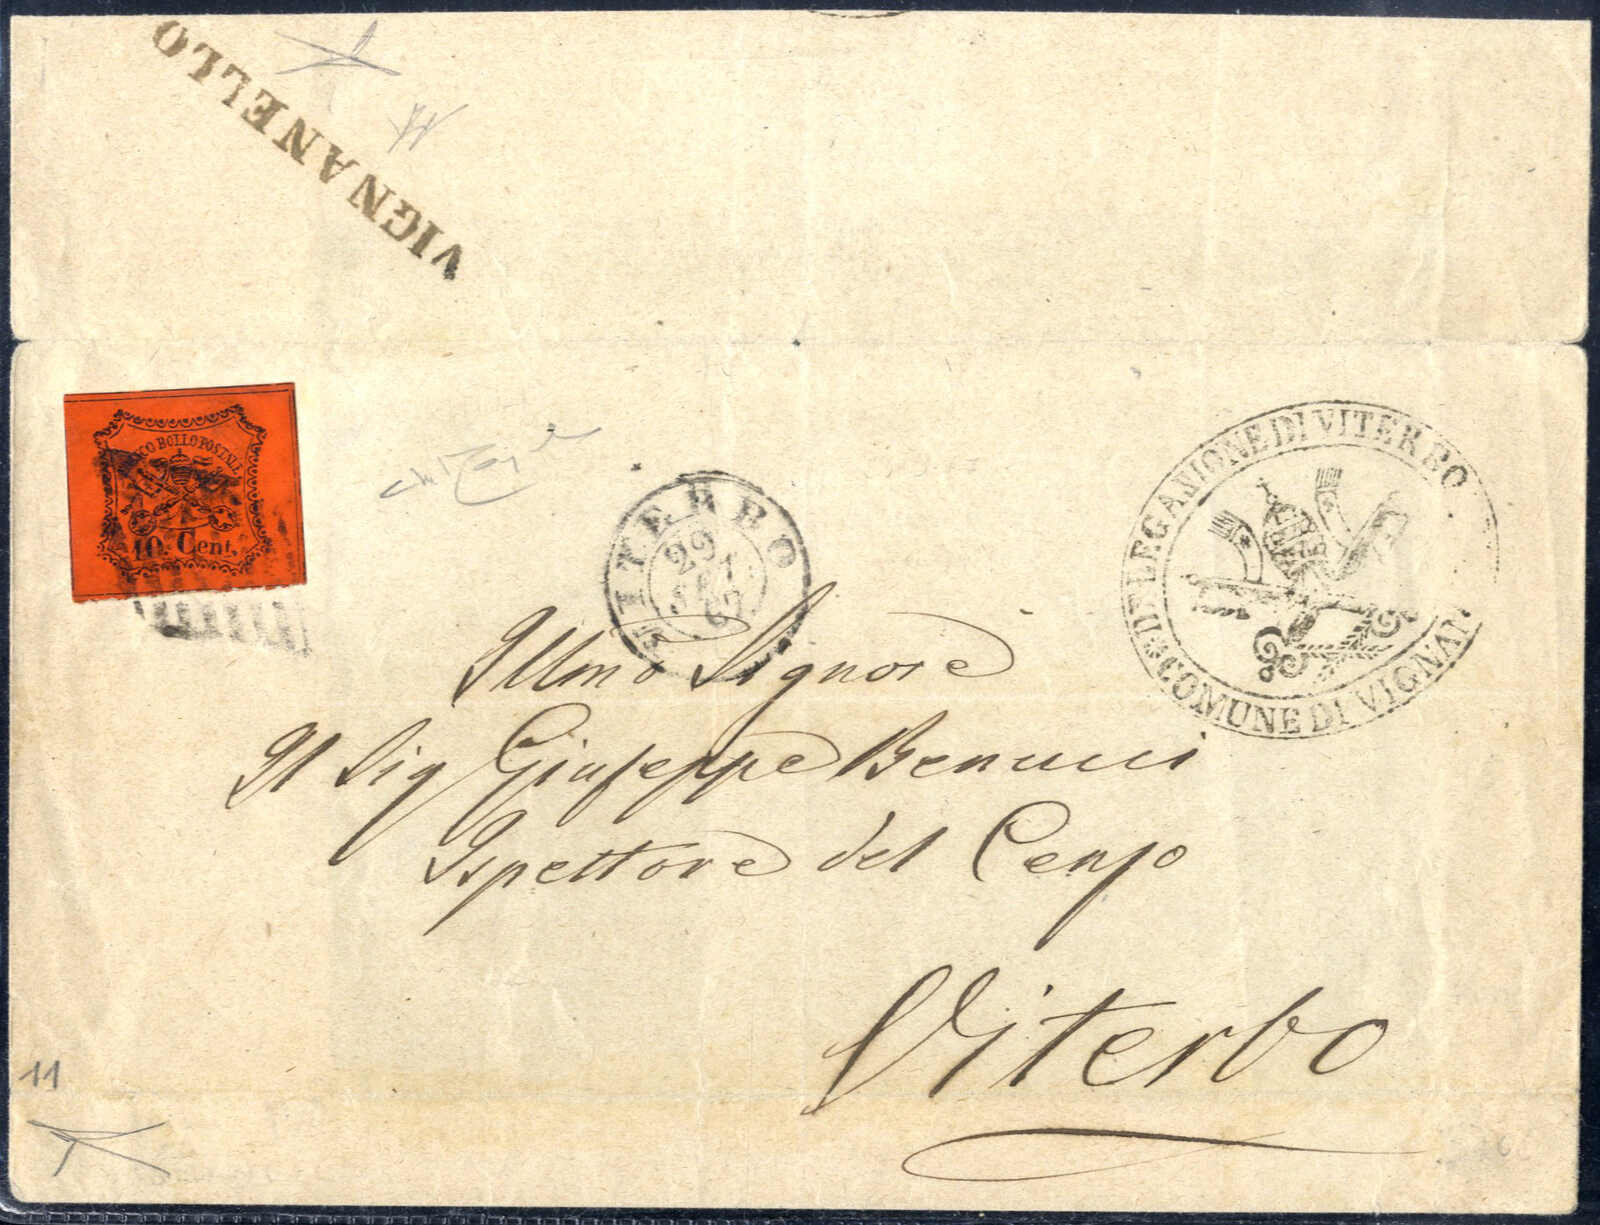 VIGNANELLO
FRANCO BOLLO POSTALE
10. Cent.
VITERBO
29
SET
67
DELEGAZIONE DI VITERBO
COMUNE DI VIGNAN
Illmo Signore
Il Sig Giuseppe Benucci
Ispettore del Censo
Viterbo
11